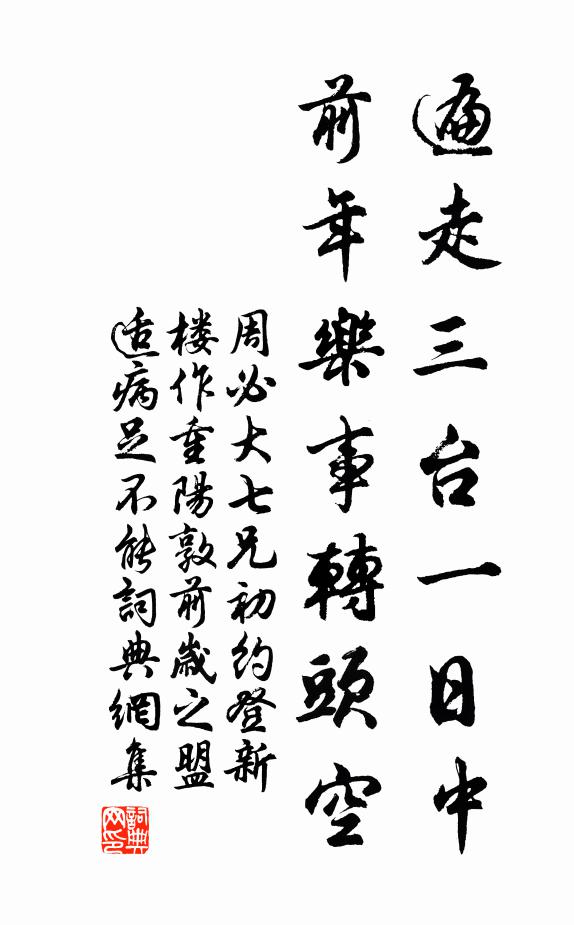 遍走三台一日中
前年樂事轉頭空
周必大七兄初約登新
楼作重陽敦前歲之盟
适病足不能詞典網集
詞典网印